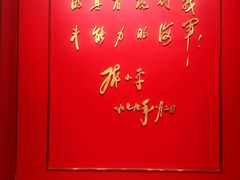 的具有现代战
斗能力的海军。
邓小平
一九七九年八月二日